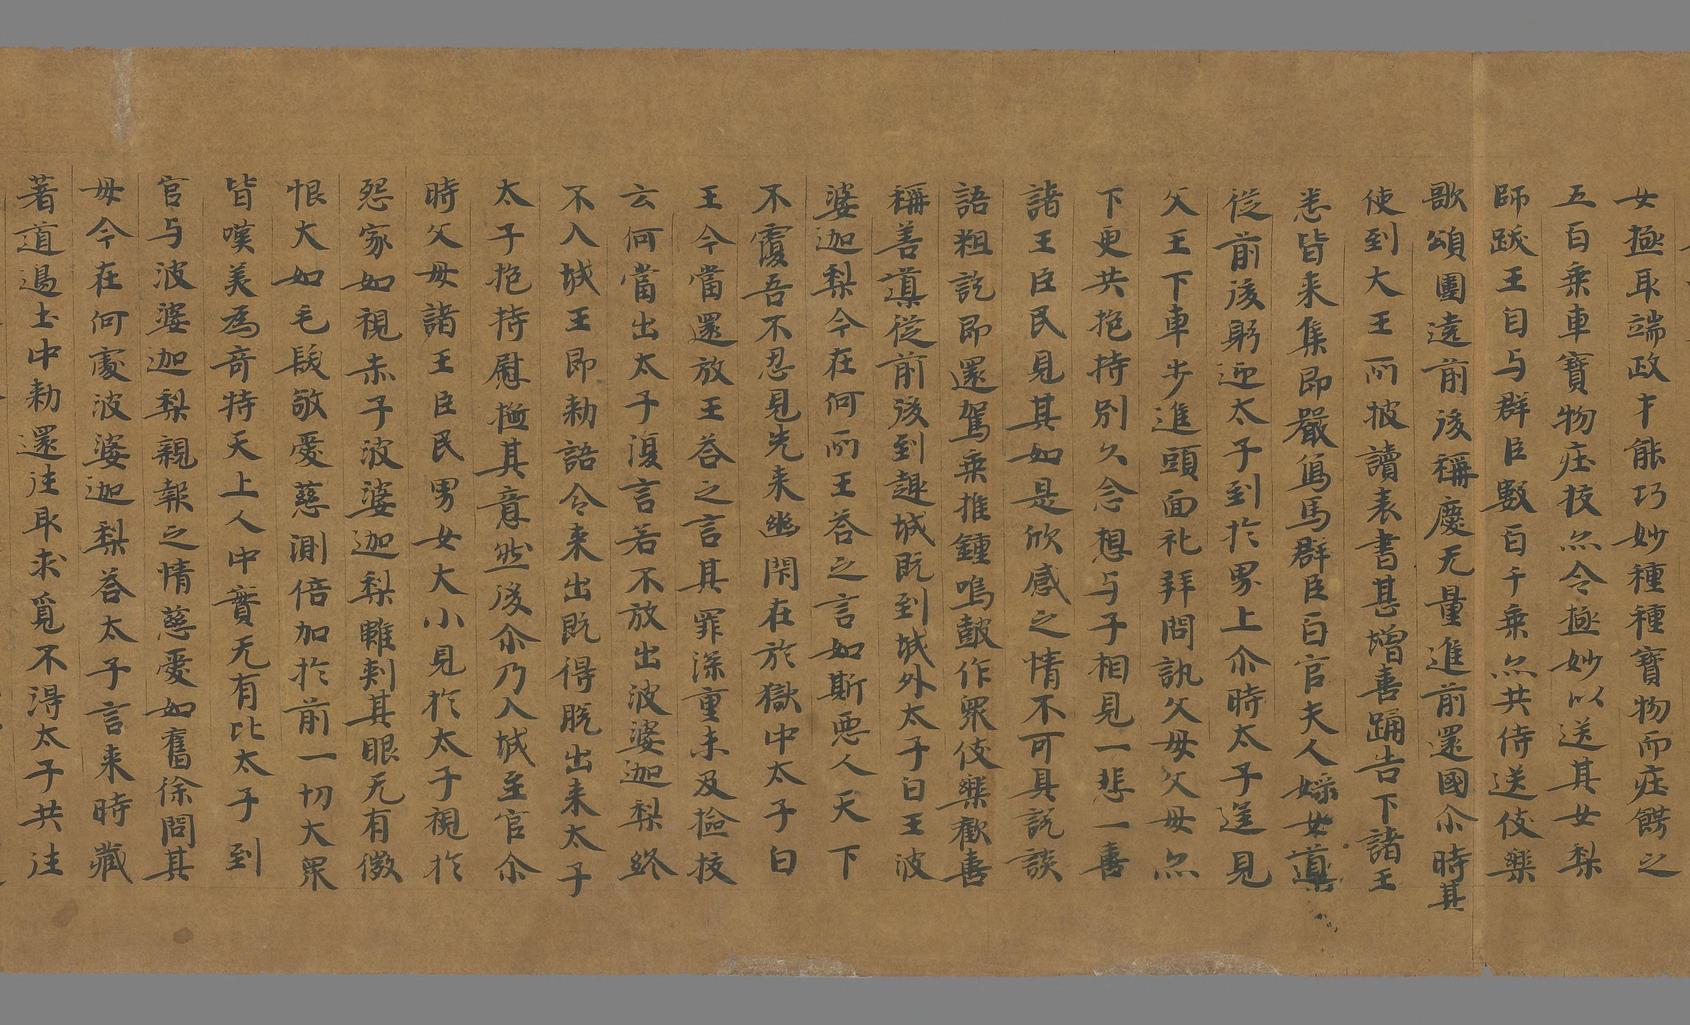 女極取端政才能巧妙種種寶物而庄餝之
五百乗車寶物庄挍亦令極妙以送其女梨
師跋王自与群臣數百千乗亦共侍送伎樂
歌頌圍遶前後稱慶无量進前還國尒時其
使到大王所披讀表書甚增善踊告下諸王
悉皆来集即嚴駕馬群臣百官夫人婇女導
従前後躬迎太子到扵界上尒時太子遥見
父王下車步進頭面礼拜問訊父母父母亦
下更共抱持別久念想与子相見一悲一憙
諸王臣民見其如是欣感之情不可具說談
語粗訖即還駕乗推鍾鳴皷作衆伎樂歡憙
稱善導従前後到趣城既到城外太子白王波
婆迦梨今在何所王荅之言如斯惡人天下
不覆吾不忍見先来幽閇在扵獄中太子白
王今當還放王荅之言其罪深重未及撿挍
云何當出太子復言若不放出波婆迦梨終
不入城王即勑語令来出既得脱出来太子
太子抱持慰撫其意然後尒乃入城至官尒
時父母諸王臣民男女大小見扵太子視扵
怨家如視赤子波婆迦梨雖刾其眼无有微
恨大如毛髮敬愛慈測倍加扵前一切大衆
皆嘆美為奇特天上人中實无有比太子到
官与波婆迦梨親報之情慈愛如舊徐問其
母今在何處波婆迦梨荅太子言来時藏
著道邊土中勑還往取求覓不得太子共往